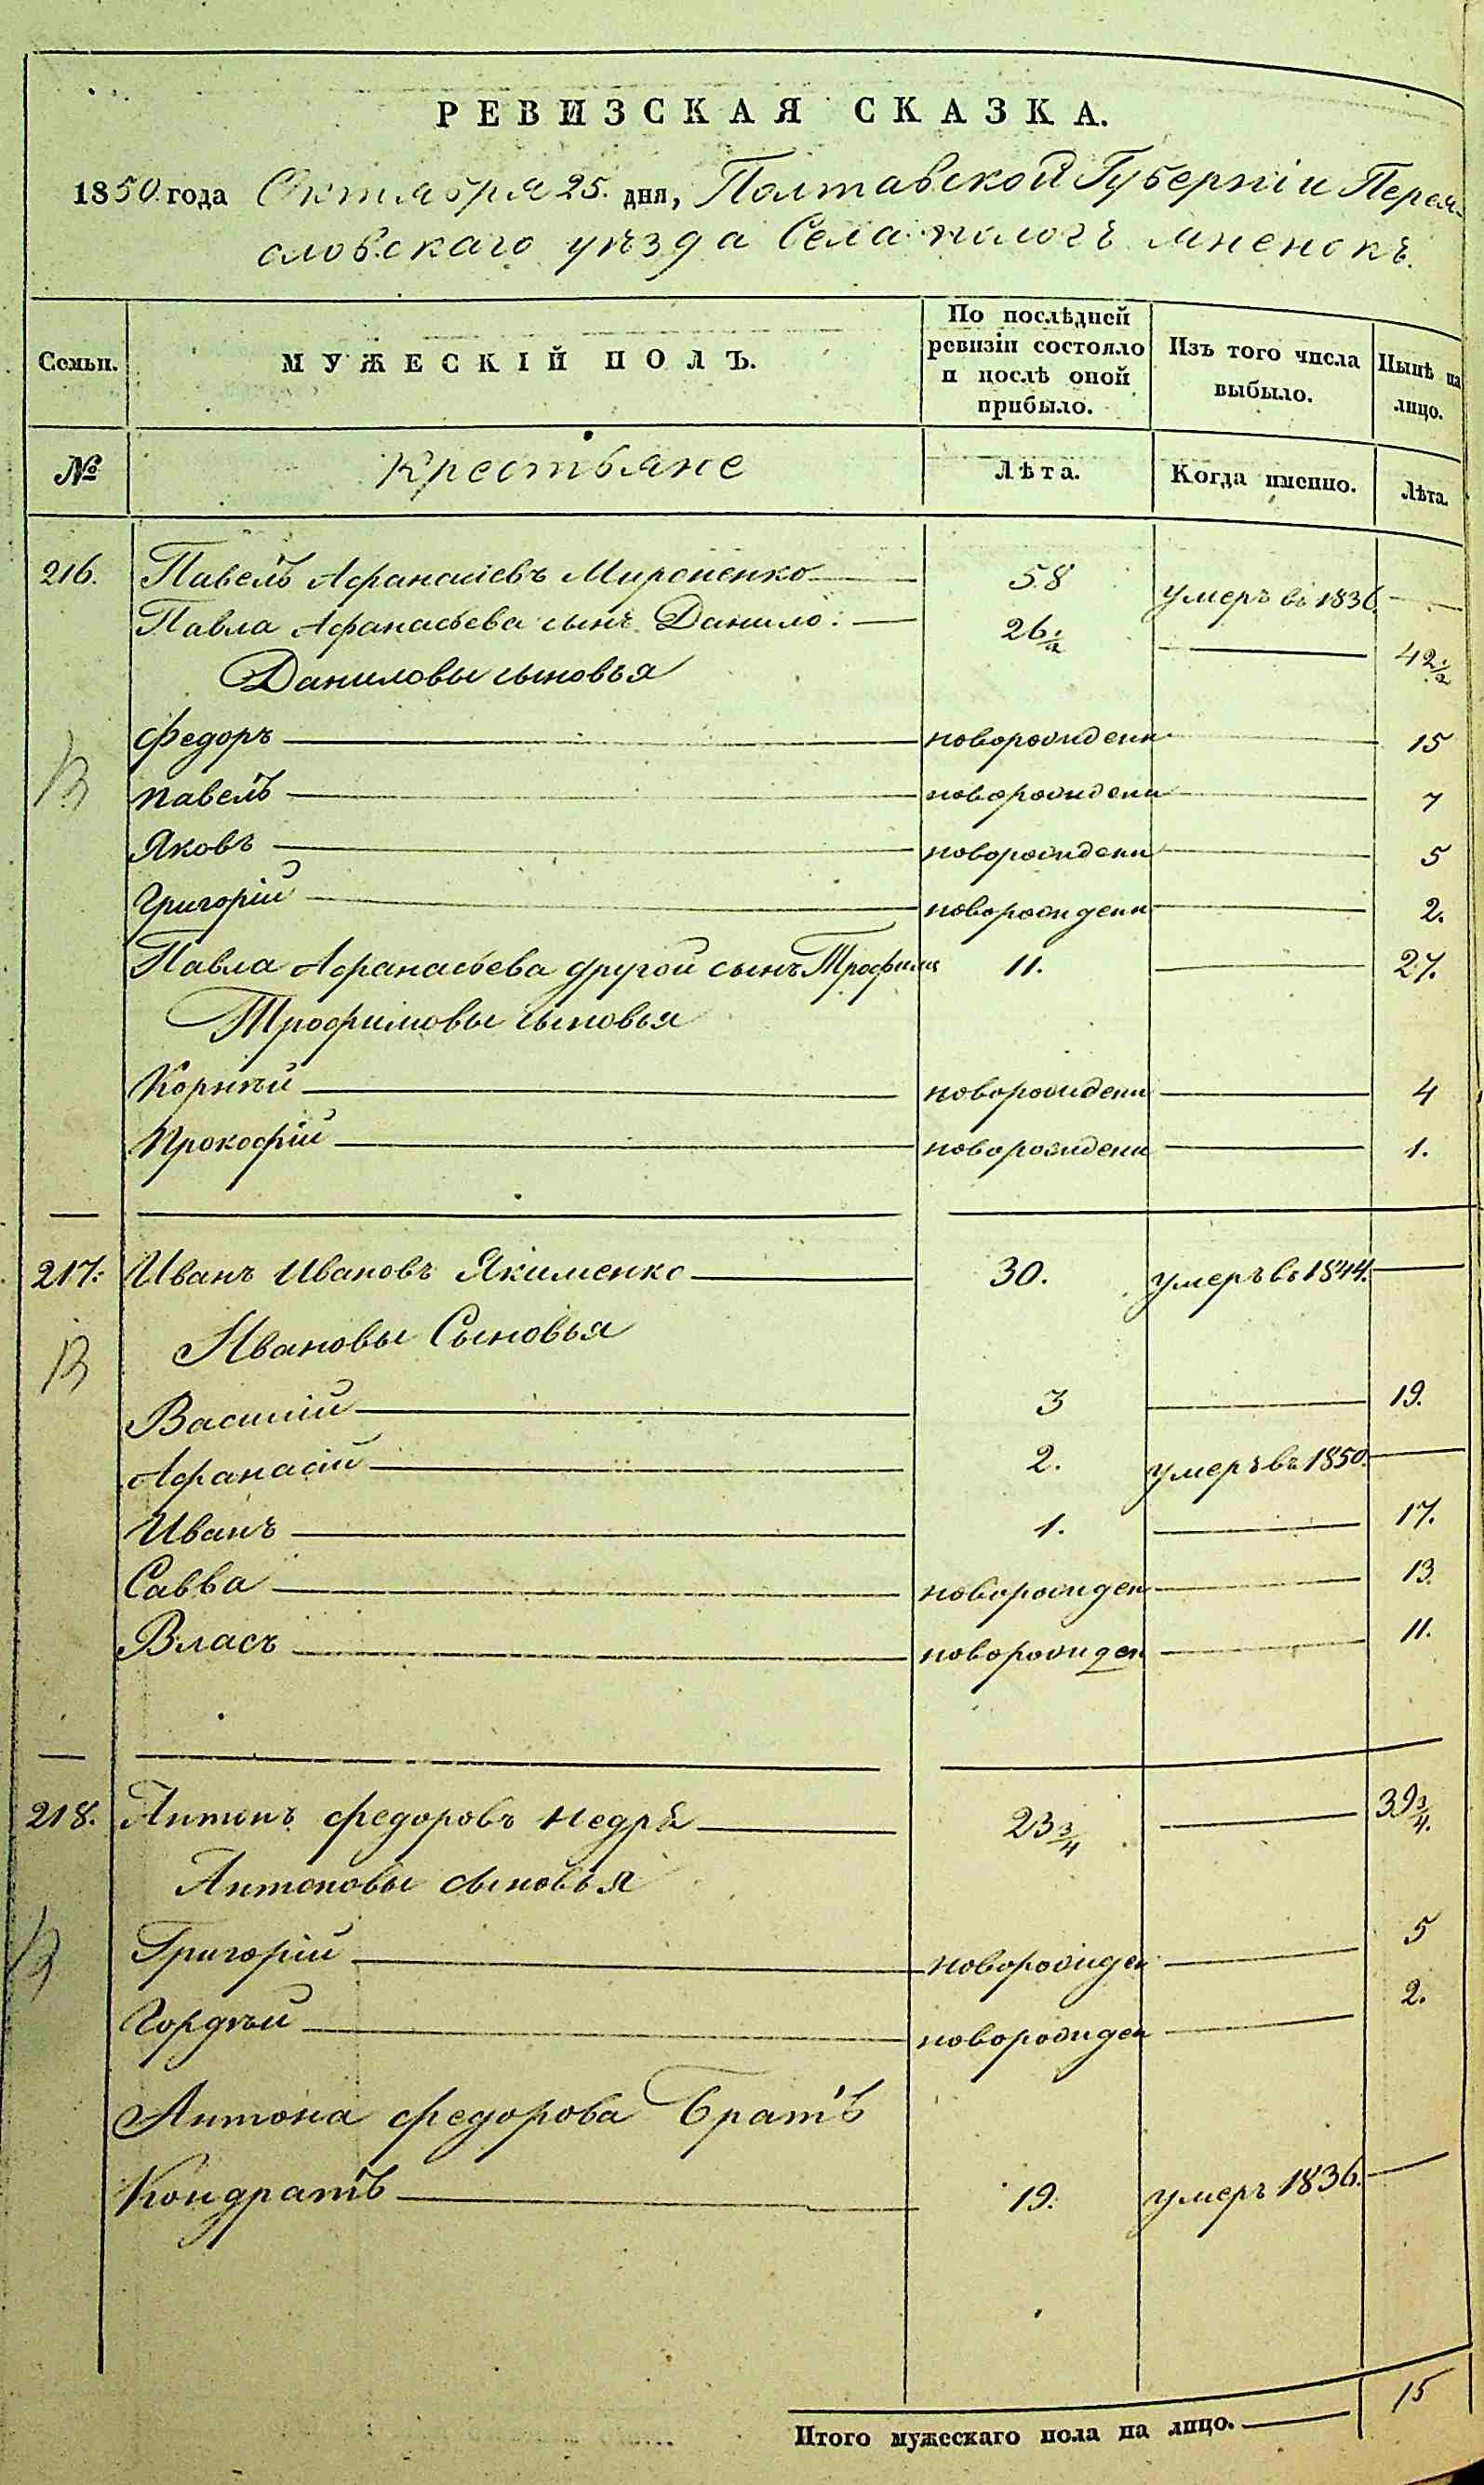 РЕВИЗСКАЯ СКАЗКА.
1850 года Октября 25. дня, Полтавской Губерніи Перея-
словскаго уѣзда Села
Семьи. МУЖЕСКІЙ ПОЛЪ. По послѣдней ревизіи состояло и послѣ оной прибыло. Изъ того числа выбыло. Нынѣ на лицо.
№ Крестьяне Лѣта. Когда именно. Лѣта.
216. Павелъ Афанасіевъ Мироненко 58 умеръ въ 1836.
Павла Афанасьева сынъ Данило: 26 1/2 42 1/2
Даниловы сыновья
Федоръ новорожденн 15
Павелъ новорожденн 7
Яковъ новорожденн 5
Григорій новорожденн 2.
Павла Афанасьева другой сынъ Трофимъ 11. 27.
Трофимовы сыновья
Корнѣй новорожденн 4
Прокофій новорожденн 1.
217. Иванъ Ивановъ Якименко 30. умеръ въ 1844.
Ивановы Сыновья
Василій 3 19.
Афанасій 2. умеръ въ 1850.
Иванъ 1. 17.
Савва новорожден 13.
Власъ новорожден 11.
218. Антонъ Федоровъ 23 3/4 39 3/4.
Антоновы сыновья
Григорій новорожден 5
Гордѣй новорожден 2.
Антона Федорова Братъ
Кондратъ 19. умеръ 1836.
Итого мужескаго пола на лицо. 15